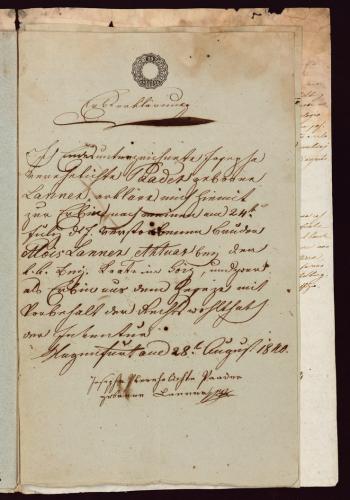 Erbserklärung
Ich Endesunterzeichnete Josepha
verehelichte Paader geborene
Lanner, erkläre mich hiemit
zur Erbin nach meinem am 24t
July d. J. verstorbenen Bruder
Alois Lanner, Aktuar bey der
k. k. in Görz, und zwar
als Erbin aus dem Gesetze mit
Vorbehalt der Rechtswohlthat
der Inventur.
Klagenfurt am 28t August 1840.
Josepha Verehelichte Paader
geborene Lanner